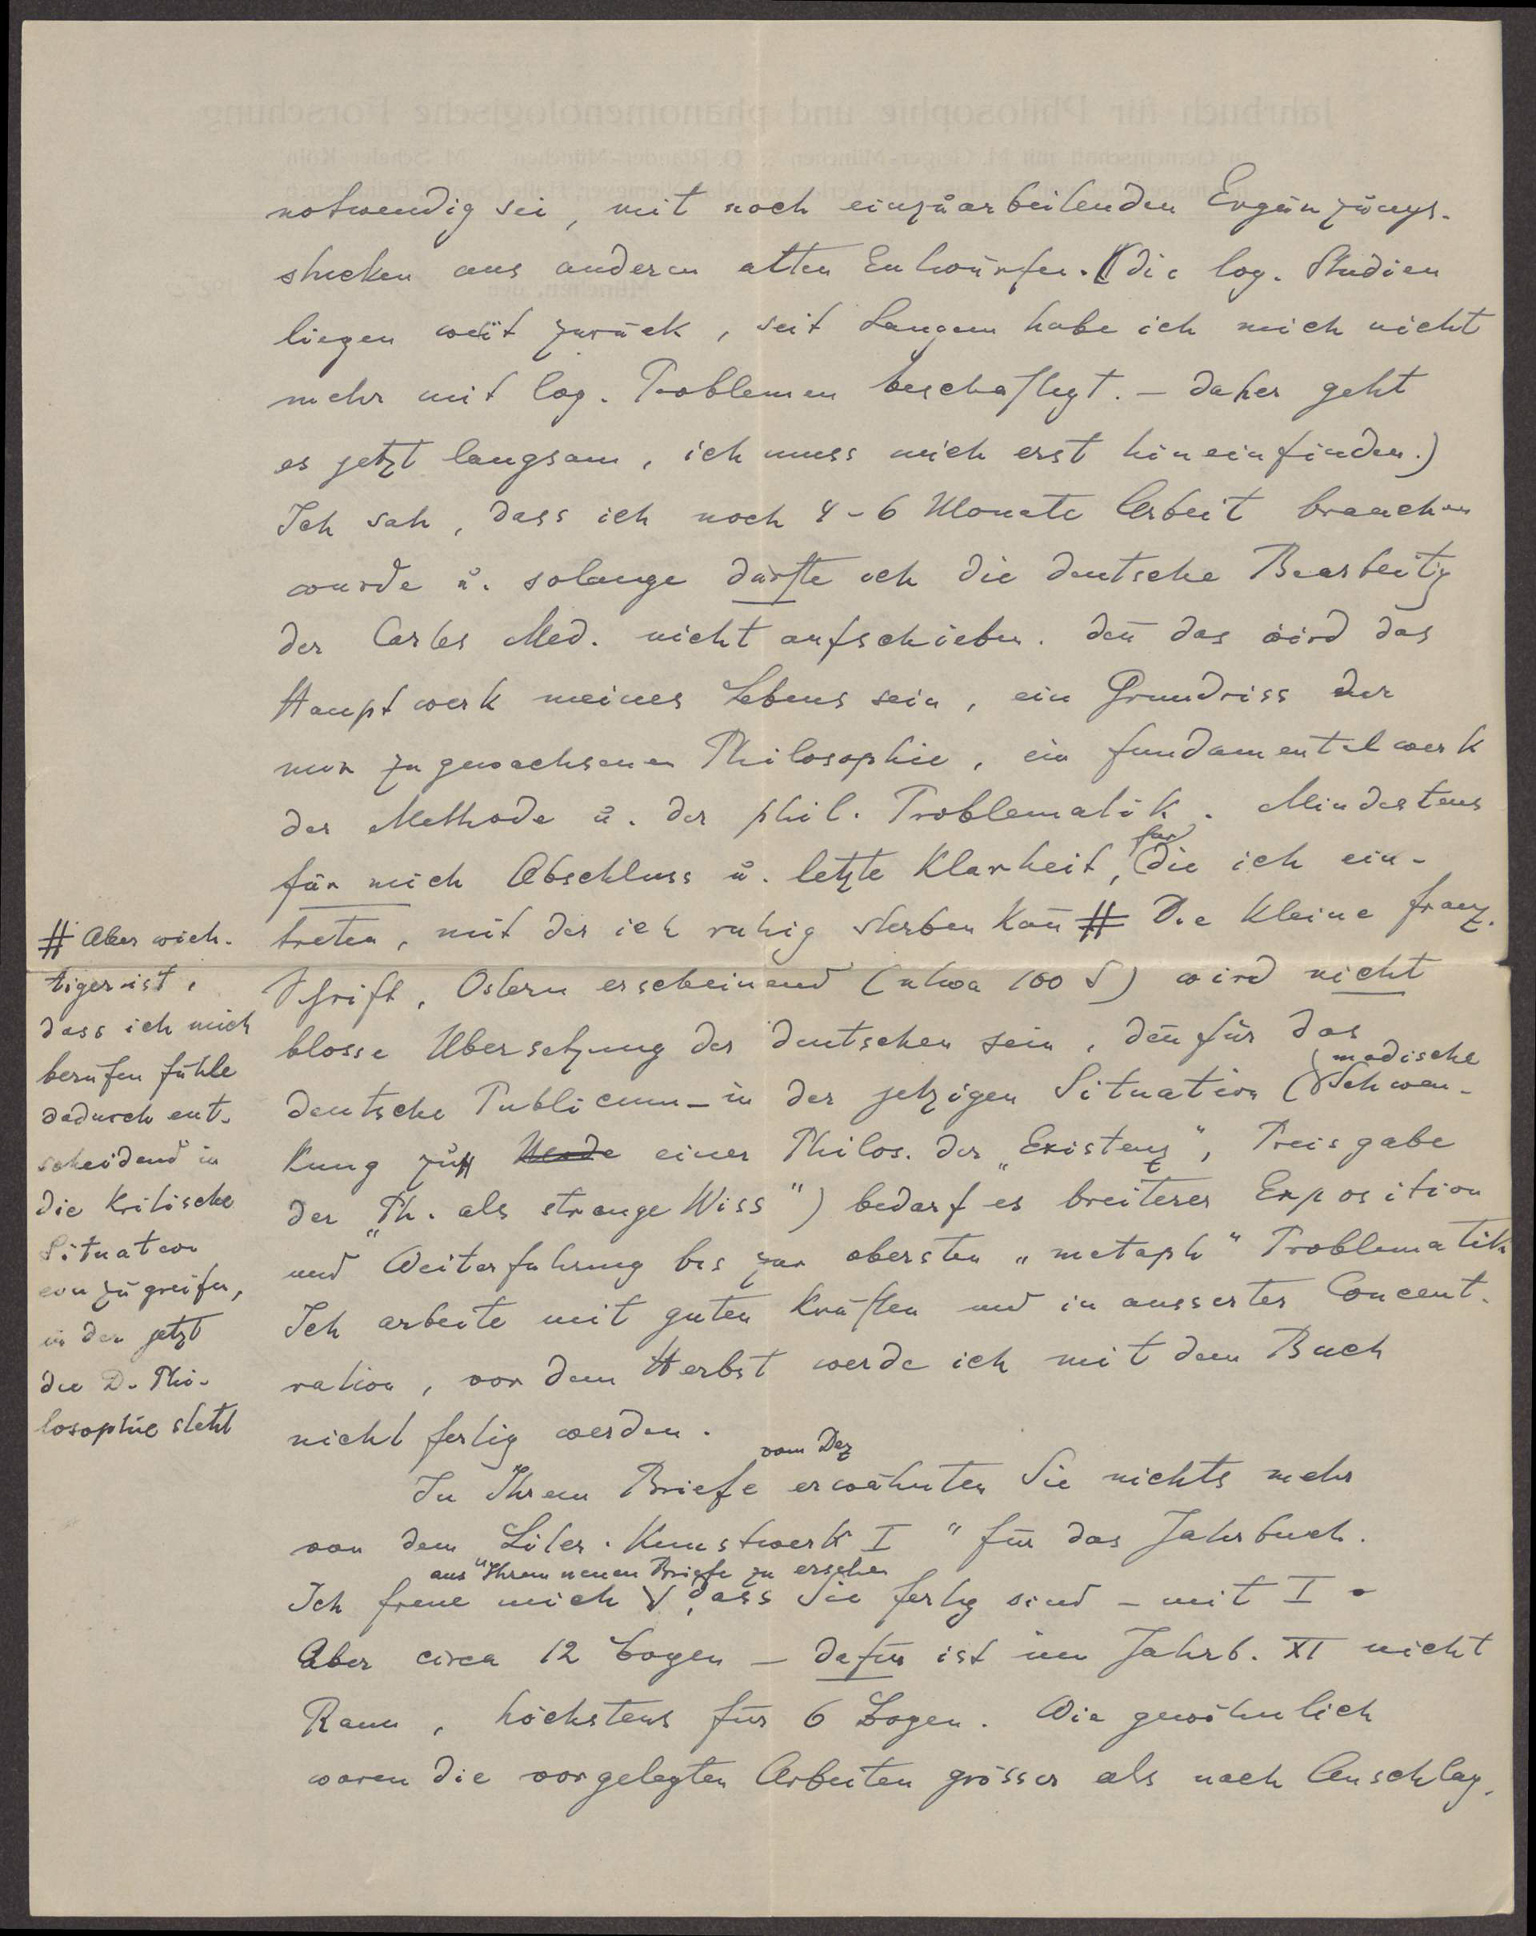 notwendig sei, mit noch einzuarbeitenden Ergänzungs-
stücken aus anderen alten Entwürfen. (die log. Studien
liegen weit zurück, seit Langem habe ich mich nicht
mehr mit log. Problemen beschäftigt. – daher geht
es jetzt langsam, ich muss mich erst hineinfinden.)
Ich sah, dass ich noch 4–6 Monate Arbeit brauchen
würde u. solange dürfte ich die deutsche Bearbeitg
der Cartes Med. nicht aufschieben. den̄ das wird das
Hauptwerk meines Lebens sein, ein Grundriss der
mir zugewachsenen Philosophie, ein Fundamentalwerk
der Methode u. der phil. Problematik. Mindestens
für mich Abschluss u. letzte Klarheit, für die ich ein-
treten, mit der ich ruhig sterben kan̄ # Die kleine franz.
Schrift, Ostern erscheinend (etwa 100 S) wird nicht
blosse Übersetzung der deutschen sein, den̄ für das
deutsche Publicum – in der jetzigen Situation (modische Schwen-
kung zu Wende einer Philos. der „Existenz", Preisgabe
der „Ph. als strenge Wiss") bedarf es breiterer Exposition
und Weiterführung bis zur obersten „metaph" Problematik
Ich arbeite mit guten Kräften und in äusserster Concent-
ration, vor dem Herbst werde ich mit dem Buch
nicht fertig werden.
In Ihrem Briefe vom Dez erwähnten Sie nichts mehr
von dem Liter. Kunstwerk I " für das Jahrbuch.
Ich freue mich aus Ihrem neuen Briefe zu ersehen, dass Sie fertig sind – mit I.
Aber circa 12 Bogen – dafür ist im Jahrb. XI nicht
Raum, höchstens für 6 Bogen. Wie gewöhnlich
waren die vorgelegten Arbeiten grösser als nach Anschlag.
# Aber wich-
tiger ist,
dass ich mich
berufen fühle
dadurch ent-
scheidend in
die kritische
Situation
einzugreifen,
in der jetzt
die D. Phi-
losophie steht